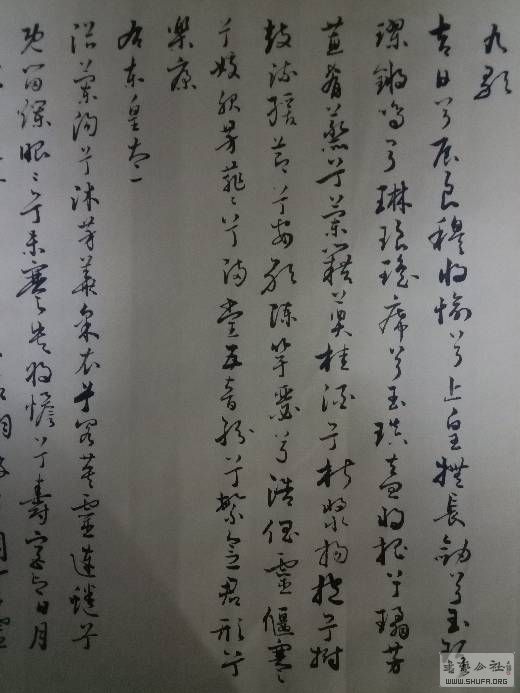 九歌
吉日兮辰良穆将愉兮上皇撫長劍兮玉珥
璆鏘鳴兮琳琅瑤席兮玉瑱盍将把兮瓊芳
蕙肴蒸兮蘭藉奠桂酒兮椒漿揚枹兮拊
鼓疏緩節兮安歌陳竽瑟兮浩倡靈偃蹇
兮姣服芳菲〻兮滿堂五音紛兮繁會君欣兮
樂康
右東皇太一
浴蘭湯兮沐芳華采衣兮若英靈連蜷兮
既留爛昭〻兮未央蹇将憺兮壽宮與日月
書艺公社
WWW.SHUFA.ORG